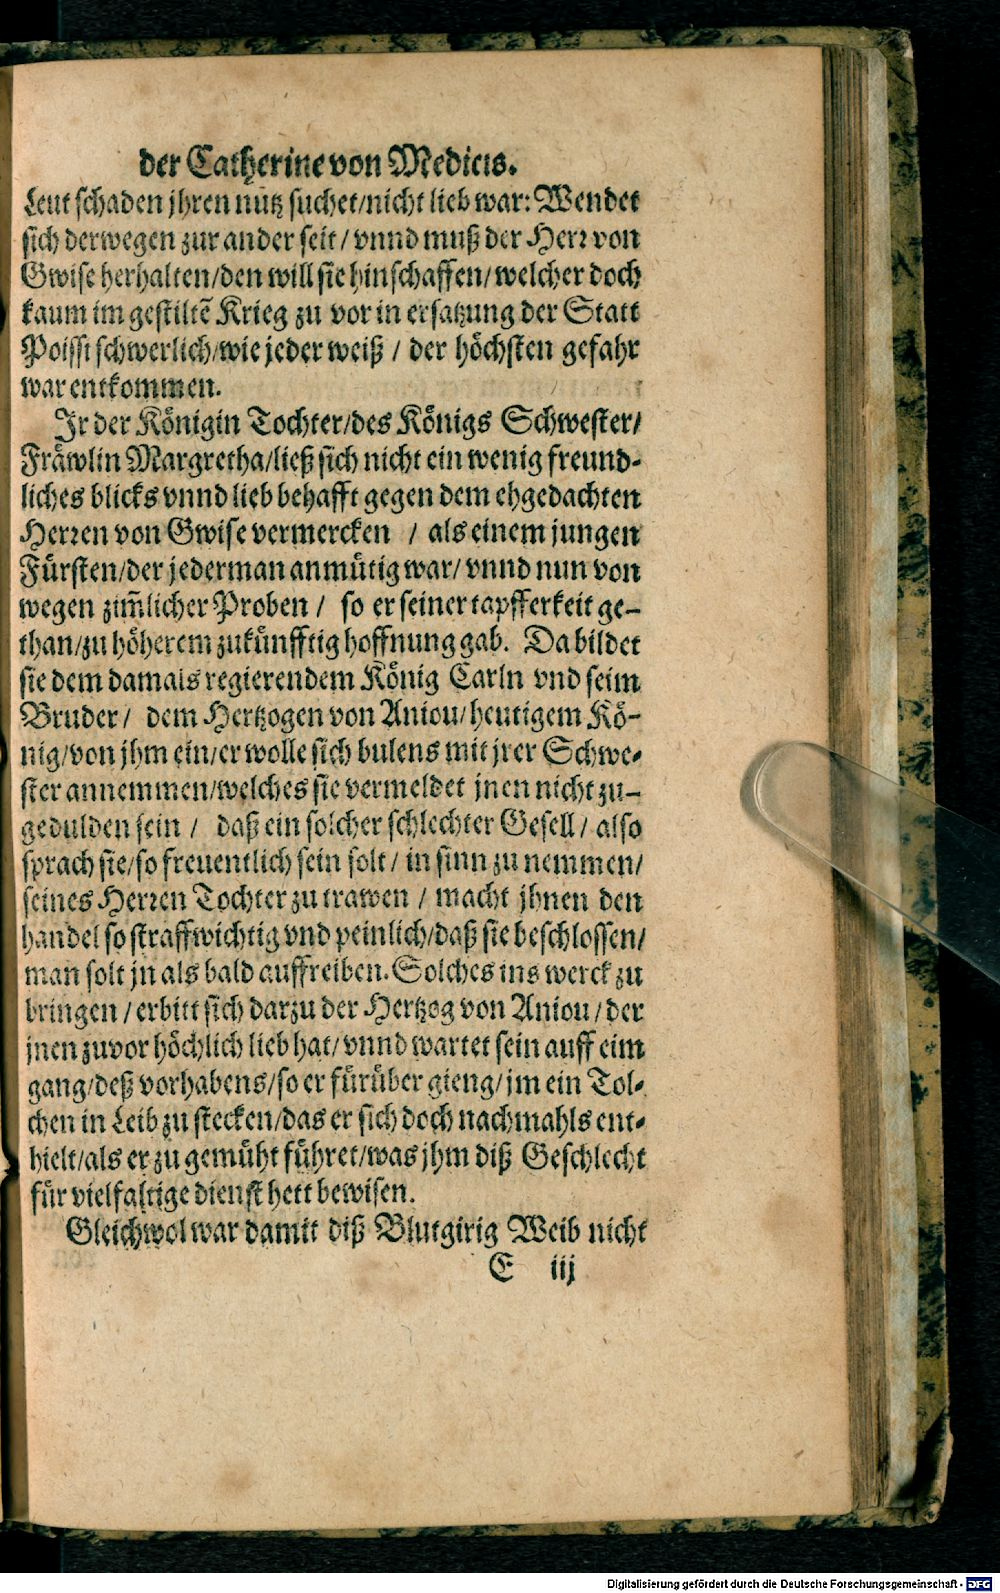 der Catherine von Medicis.
Leut schaden jhren nutz suchet/nicht lieb war: Wendet
sich derwegen zur ander seit/ vnnd muß der Herr von
Gwise herhalten/den will sie hinschaffen/welcher doch
kaum im gestiltē Krieg zu vor in ersatzung der Statt
Poissi schwerlich/wie jeder weiß / der höchsten gefahr
war entkommen.
Jr der Königin Tochter/des Königs Schwester/
Fräwlin Margretha/ließ sich nicht ein wenig freund-
liches blicks vnnd lieb behafft gegen dem ehgedachten
Herren von Gwise vermercken / als einem jungen
Fürsten/der jederman anmütig war/ vnnd nun von
wegen zim̄licher Proben / so er seiner tapfferkeit ge-
than/zu höherem zukünfftig hoffnung gab. Da bildet
sie dem damals regierendem König Carln vnd seim
Bruder/ dem Hertzogen von Aniou/heutigem Kö-
nig/von jhm ein/er wolle sich bulens mit jrer Schwe-
ster annemmen/welches sie vermeldet jnen nicht zu-
gedulden sein / daß ein solcher schlechter Gesell/ also
sprach sie/so freuentlich sein solt/ in sinn zu nemmen/
seines Herren Tochter zu trawen / macht jhnen den
handel so straffwichtig vnd peinlich/daß sie beschlossen/
man solt jn als bald auffreiben. Solches ins werck zu
bringen / erbitt sich darzu der Hertzog von Aniou/der
jnen zuvor höchlich lieb hat/ vnnd wartet sein auff eim
gang/deß vorhabens/so er fürüber gieng/jm ein Tol-
chen in Leib zu stecken/das er sich doch nachmahls ent-
hielt/als er zu gemüht führet/was jhm diß Geschlecht
für vielfaltige dienst hett bewisen.
Gleichwol war damit diß Blutgirig Weib nicht
E iij
Digitalisierung gefördert durch die Deutsche Forschungsgemeinschaft - DFG